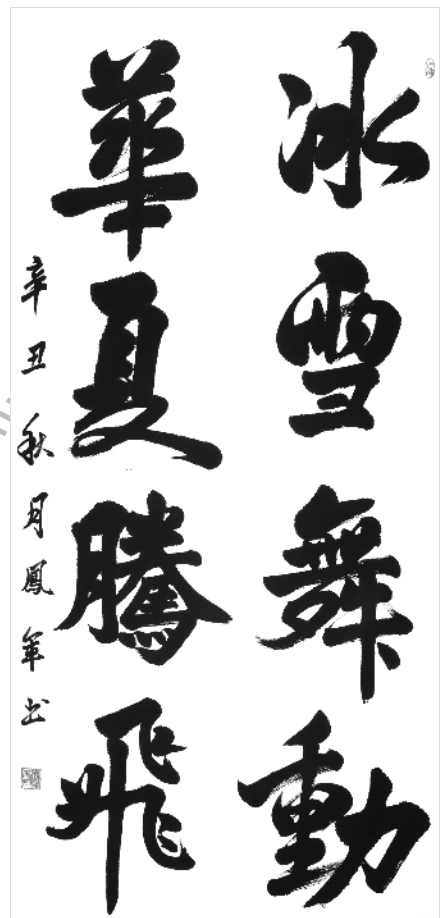 冰雪舞動
華夏騰飛
辛丑秋月鳳年书